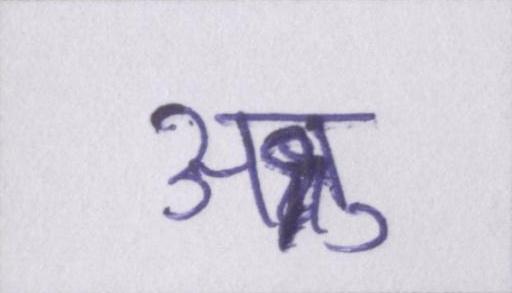 अश्रु